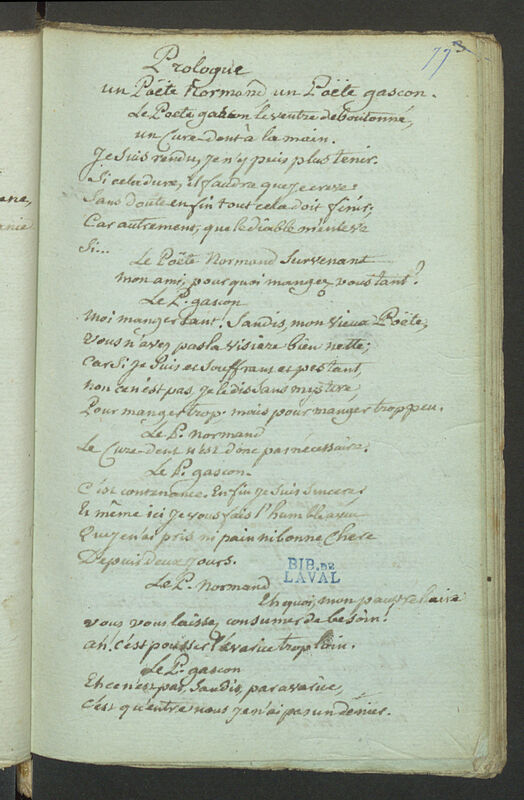 773
Prologue
un Poëte Normand un Poëte gascon.
Le Poete gascon le ventre deboutonné,
un Cure-dent à la main.
Je suis rendu, je n'y puis plus tenir.
Si cela dure, il faudra que je creve
Sans doute enfin tout cela doit finir;
Car autrement, que le diable m'enleve
Si...
Le Poëte Normand survenant
mon ami, pourquoi mangez vous tant?
Le P. gascon
moi manger tant! Sandis, mon vieux Poëte,
Vous n'avez pas la visiere bien nette;
Car si je suis et souffrant et pestant,
non ce n'est pas, je le dis sans mystere
Pour manger trop, mais pour manger trop peu.
Le P. Normand
Le Cure-dent n'est donc pas nécessaire.
Le P. gascon.
C'est contenance. Enfin je suis sincere
Et même ici je vous fais l'humble aveu
Que je n'ai pris ni pain ni bonne chere
Depuis deux jours.
Le P. Normand
Eh quoi, mon pauvre haire
vous vous laissez consumer de besoin!
ah, c'est pousser l'avarice trop loin.
Le P. gascon
Eh ce n'est pas, Sandis, par avarice,
C'est qu'entre nous je n'ai pas un dénier.
BIB. DE
LAVAL